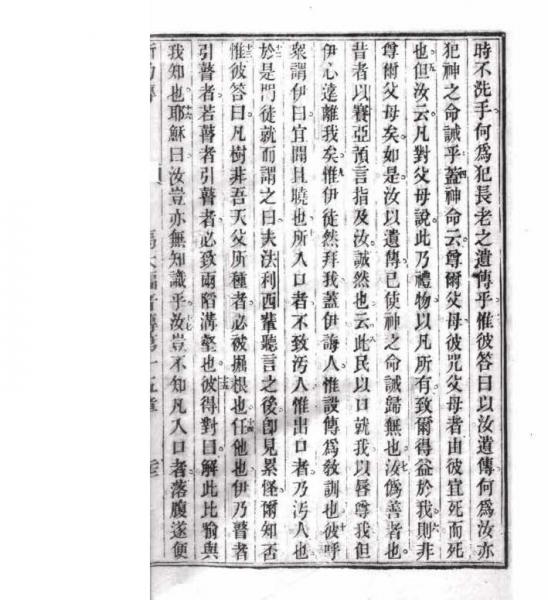 時不洗手何爲犯長老之遺傳乎惟彼答曰以汝遺傳何爲汝亦
犯神之命誡乎蓋神命云尊爾父母彼咒父母者由彼宜死而死
也但汝云凡對父母說此乃禮物以凡所有致爾得益於我則非
尊爾父母矣如是汝以遺傳已使神之命誡歸無也汝僞善者也
昔者以賽亞預言指及汝誠然也云此民以口就我以唇尊我但
伊心遠離我矣惟伊徒然拜我蓋伊誨人惟設傳爲敎訓也彼呼
衆謂伊曰宜聞且曉也所入口者不致污人惟出口者乃污人也
於是門徒就而謂之曰夫法利西輩聽言之後卽見累怪爾知否
惟彼答曰凡樹非吾天父所種者必被掘根也任他也伊乃瞽者
引瞽者若瞽者引瞽者必致兩陷溝壑也彼得對曰解此比喻與
我知也耶穌曰汝豈亦無知識乎汝豈不知凡入口者落腹遂便